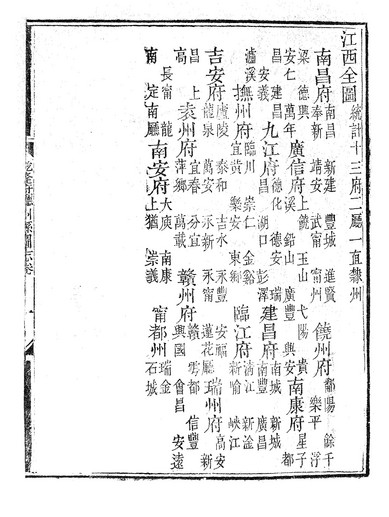 江西全圖 統計十三府二廳一直隸州
南昌府 南昌 新建 豐城 進賢 奉新 靖安 武甯 甯州 饒州府 鄱陽 餘干 樂平 浮
梁 德興 安仁 萬年 廣信府 上饒 玉山 弋陽 貴溪 鉛山 廣豐 興安 南康府 星子 都
昌 建昌 安義 九江府 德化 德安 瑞昌 湖口 彭澤 建昌府 南城 新城 南豐 廣昌
瀘溪 撫州府 臨川 崇仁 金谿 宜黃 樂安 東鄉 臨江府 清江 新淦 新喻 峽江
吉安府 廬陵 泰和 吉水 永豐 安福 龍泉 萬安 永新 永甯 蓮花廳 瑞州府 高安 新
昌 上高 袁州府 宜春 分宜 萍鄉 萬載 贛州府 贛 雩都 信豐 興國 會昌 安遠
長甯 龍南 定南廳 南安府 大庾 南康 上猶 崇義 甯都州 瑞金 石城